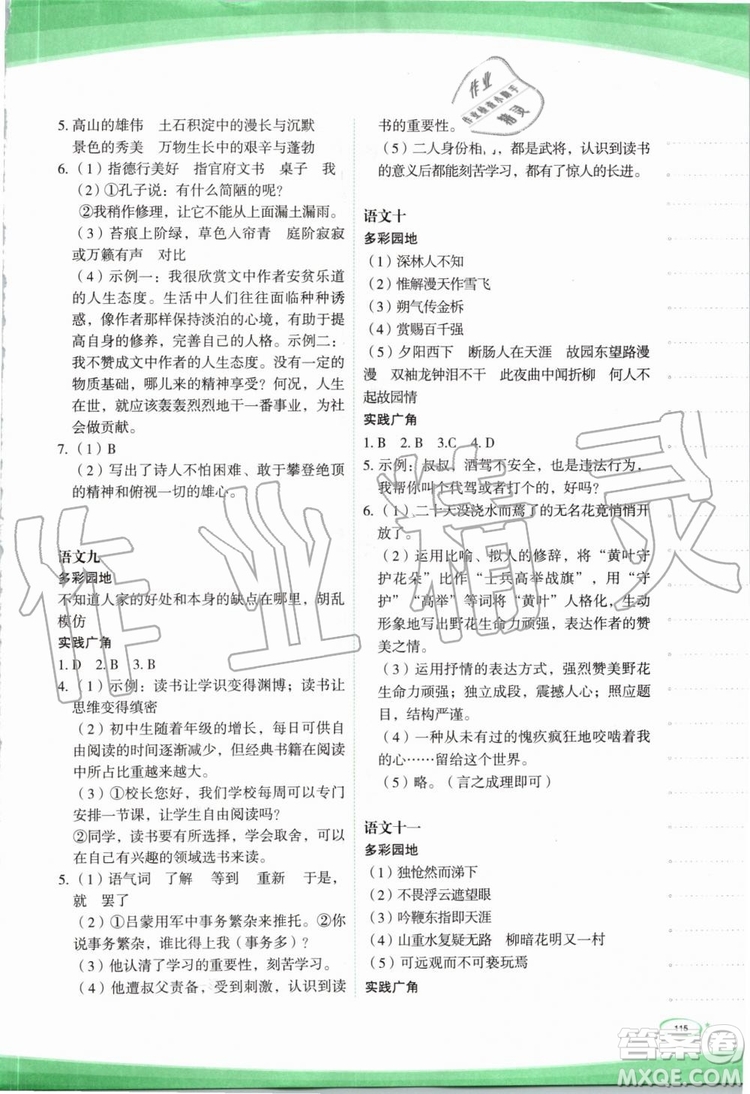 5. 高山的雄伟　土石积淀中的漫长与沉默
景色的秀美　万物生长中的艰辛与蓬勃
6.（1）指德行美好　指官府文书　桌子　我
（2）①孔子说：有什么简陋的呢？
②我稍作修理，让它不从上面漏土漏雨。
（3）苔痕上阶绿，草色入帘青　庭阶寂寂
或万籁有声　对比
（4）示例一：我很欣赏文中作者安贫乐道
的人生态度。生活中人们往往有种种诱
惑，像作者那样保持淡泊的心境，有助于提
高自身的修养，完善自己的人格。示例二：
我不赞成文中作者的人生态度。没有一定的
物质基础，哪儿来的精神享受？何况，人生
在世，就应该轰轰烈烈地干一番事业，为社
会做贡献。
7.（1）B
（2）写出了诗人不怕困难、敢于攀登绝顶
的精神和俯视一切的雄心。
语文九
多彩园地
不知道人家的好处和本身的缺点在哪里，胡乱
模仿
实践广角
1. D　2. B　3. B
4.（1）示例：读书让学识变得渊博；读书让
思维变得缜密
（2）初中生随着年级的增长，每日可供自
由阅读的时间逐渐减少，但经典书籍在阅读
中所占比重越来越大。
（3）①校长您好，我们学校每周可以专门
安排一节课，让学生自由阅读吗？
②同学，读书要有所选择，学会取舍，可以
在自己有兴趣的领域选书来读。
5.（1）语气词　了解　等到　重新　于是，
就　罢了
（2）①吕蒙用军中事务繁杂来推托。②你
说事务繁杂，谁比得上我（事务多）？
（3）他认清了学习的重要性，刻苦学习。
（4）他遭叔父责备，受到刺激，认识到读
书的重要性。
（5）二人身份相同，都是武将，认识到读书
的意义后都能刻苦学习，都有了惊人的长进。
语文十
多彩园地
（1）深林人不知
（2）惟解漫天作雪飞
（3）朔气传金柝
（4）赏赐百千强
（5）夕阳西下　断肠人在天涯　故园东望路漫
漫　双袖龙钟泪不干　此夜曲中闻折柳　何人不
起故园情
实践广角
1. B　2. B　3.C　4. D
5. 示例：叔叔，酒驾不安全，也是违法行为，
我帮你叫个代驾或者打个的，好吗？
6.（1）二十天没浇水而蔫了的无名花竟悄悄开
放了。
（2）运用比喻、拟人的修辞，将“黄叶守
护花朵”比作“士兵高举战旗”，用“守
护”“高举”等词将“黄叶”人格化，生动
形象地写出野花生命力顽强，表达作者的赞
美之情。
（3）运用抒情的表达方式，强烈赞美野花
生命力顽强；独立成段，震撼人心；照应题
目，结构严谨。
（4）一种从未有过的愧疚疯狂地咬啮着我
的心……留给这个世界。
（5）略。（言之成理即可）
语文十一
多彩园地
（1）独怆然而涕下
（2）不畏浮云遮望眼
（3）吟鞭东指即天涯
（4）山重水复疑无路　柳暗花明又一村
（5）可远观而不可亵玩焉
实践广角
115
作业精灵
作业
作业检查小助手
精灵
答案圈
MXQE.COM